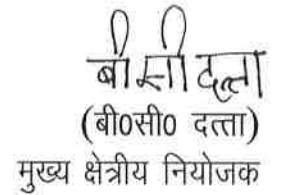 बी सी दत्ता
(बी0सी0 दत्ता)
मुख्य क्षेत्रीय नियोजक